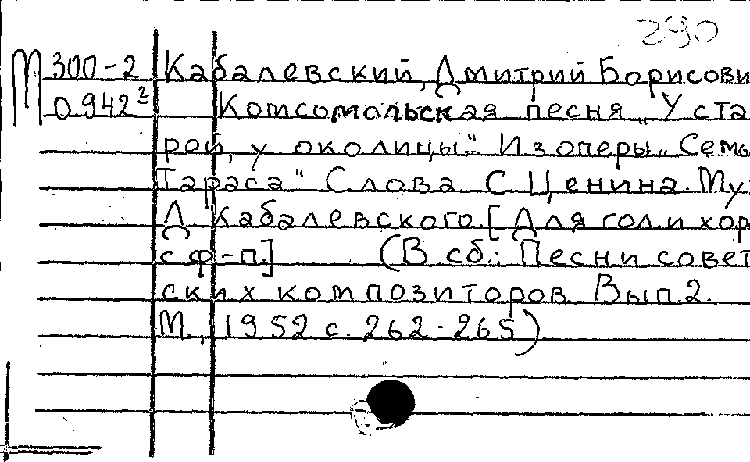 290
М 300-2 Кабалевский, Дмитрий Борисови
0.942² Комсомольская песня „У ста
рой, у околицы“ Из оперы „Семь
Тараса“ Слова С. Ценина. Му
Д Кабалевского. [Для гол. и хор
с ф-п.] (В сб.: Песни совет
ских композиторов. Вып. 2.
М., 1952 с. 262-265)